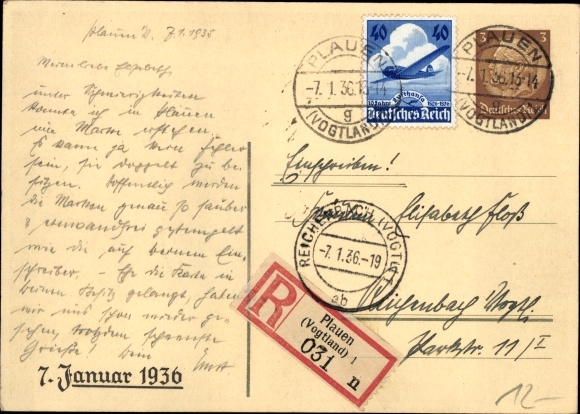 Plauen V. 7.1.1936
Meine liebe Elisabeth,
unter Schwierigkeiten
konnte ich in Plauen
eine Marke erstehen.
Es kann ja kein Fehler
sein, sie doppelt zu be-
sitzen. Hoffentlich werden
die Marken genau so sauber
& einwandfrei gestempelt
wie die auf deinem Ein-
schreiber. – Ehe die Karte in
deinen Besitz gelangt, haben
wir uns schon wieder ge-
sehen, trotzdem
Grüße! Dein
Ernst
7. Januar 1936
40 40
10 Jahre Lufthansa 1926-1936
Deutsches Reich
3 3
Deutsches Reich
PLAUEN
-7.1.36.13-14
g
(VOGTLAND)
PLAUEN
-7.1.36.13-14
g
(VOGTLAND)
Einschreiben!
Fräulein Elisabeth Floß
REICHENBACH (VOGTL)
-7.1.36.-19
ab
Reichenbach Vogtl.
Parkstr. 11/I
R
Plauen
(Vogtland) 1
031 n
12.-